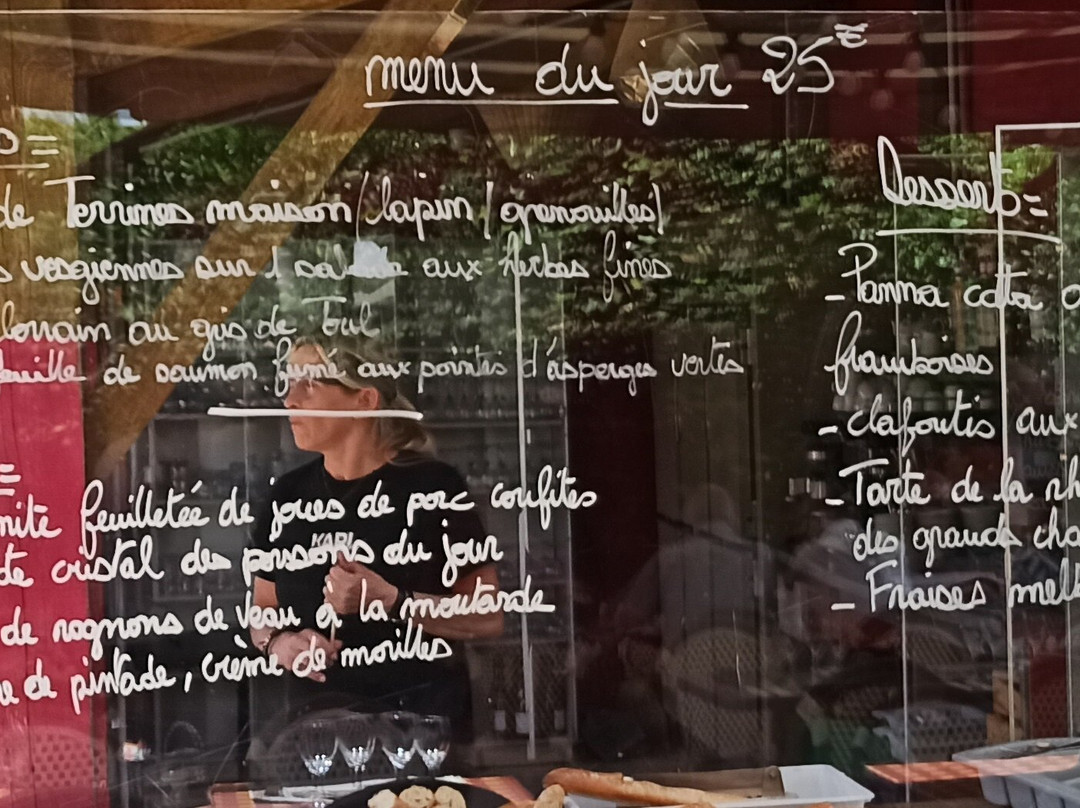 menu du jour 25€
de Terrines maison (lapin / grenouilles)
vosgiennes sur 1 aux herbes fines
lorrain au gris de Tul
de saumon fumé aux pointes d'asperges vertes
feuilletée de joues de porc confites
cristal des poissons du jour
de rognons de veau à la moutarde
de pintade, crème de morilles
KARL
Desserts =
- Panna cotta
framboises
- clafoutis aux
- Tarte de la rh
des grands cha
- Fraises mel